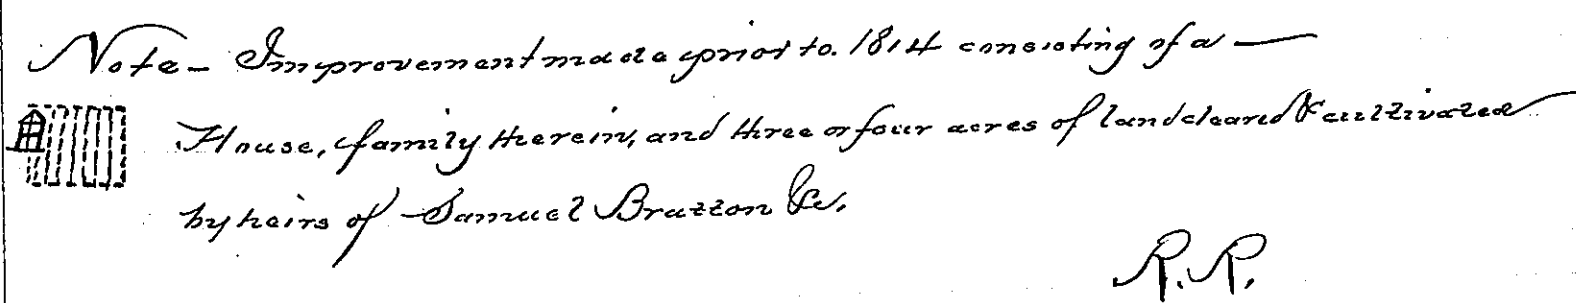 Note - Improvement made prior to. 1814 consisting of a —
House, family therein, and three or four acres of land cleared & cultivated
by heirs of Samuel Bratton &c.
R. R.